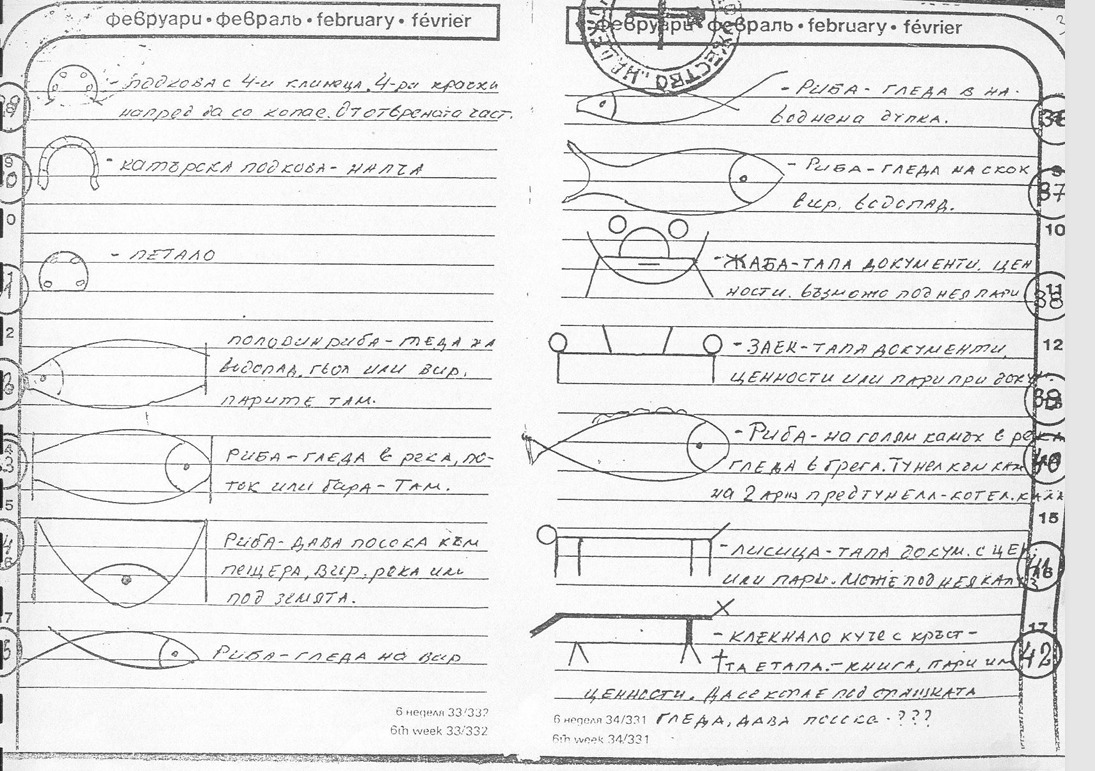 февруари • февраль • february • février
- подкова с 4-и клинеца, 4-ри крачки
напред да се копае. От отворената част.
- катърска подкова - налча
- петало
половин риба - гледа на
водопад, гьол или вир,
парите там.
Риба - гледа в река, по-
ток или бара - там.
Риба - дава посока към
пещера, вир, река или
под земята.
Риба - гледа на вир
6 неделя 33/332
6th week 33/332
февруари • февраль • february • février
- Риба - гледа в на-
воднена дупка.
- Риба - гледа на скок
вир, водопад.
- Жаба - тапа документи, цен
ности. Възможо под нея пари
- Заек - тапа документи,
ценности или пари при
- Риба - на голям камък в река
гледа в брега. Тунел към
на 2 арш пред тунела - котел.
- Лисица - тапа докум. с цен.
или пари. Може под нея
- клекнало куче с кръст -
та етапа. - книга, пари или
ценности. Да се копае под опашката
6 неделя 34/331 гледа, дава посока - ???
6th week 34/331
37
10
11
38
12
39
40
15
41
16
17
42